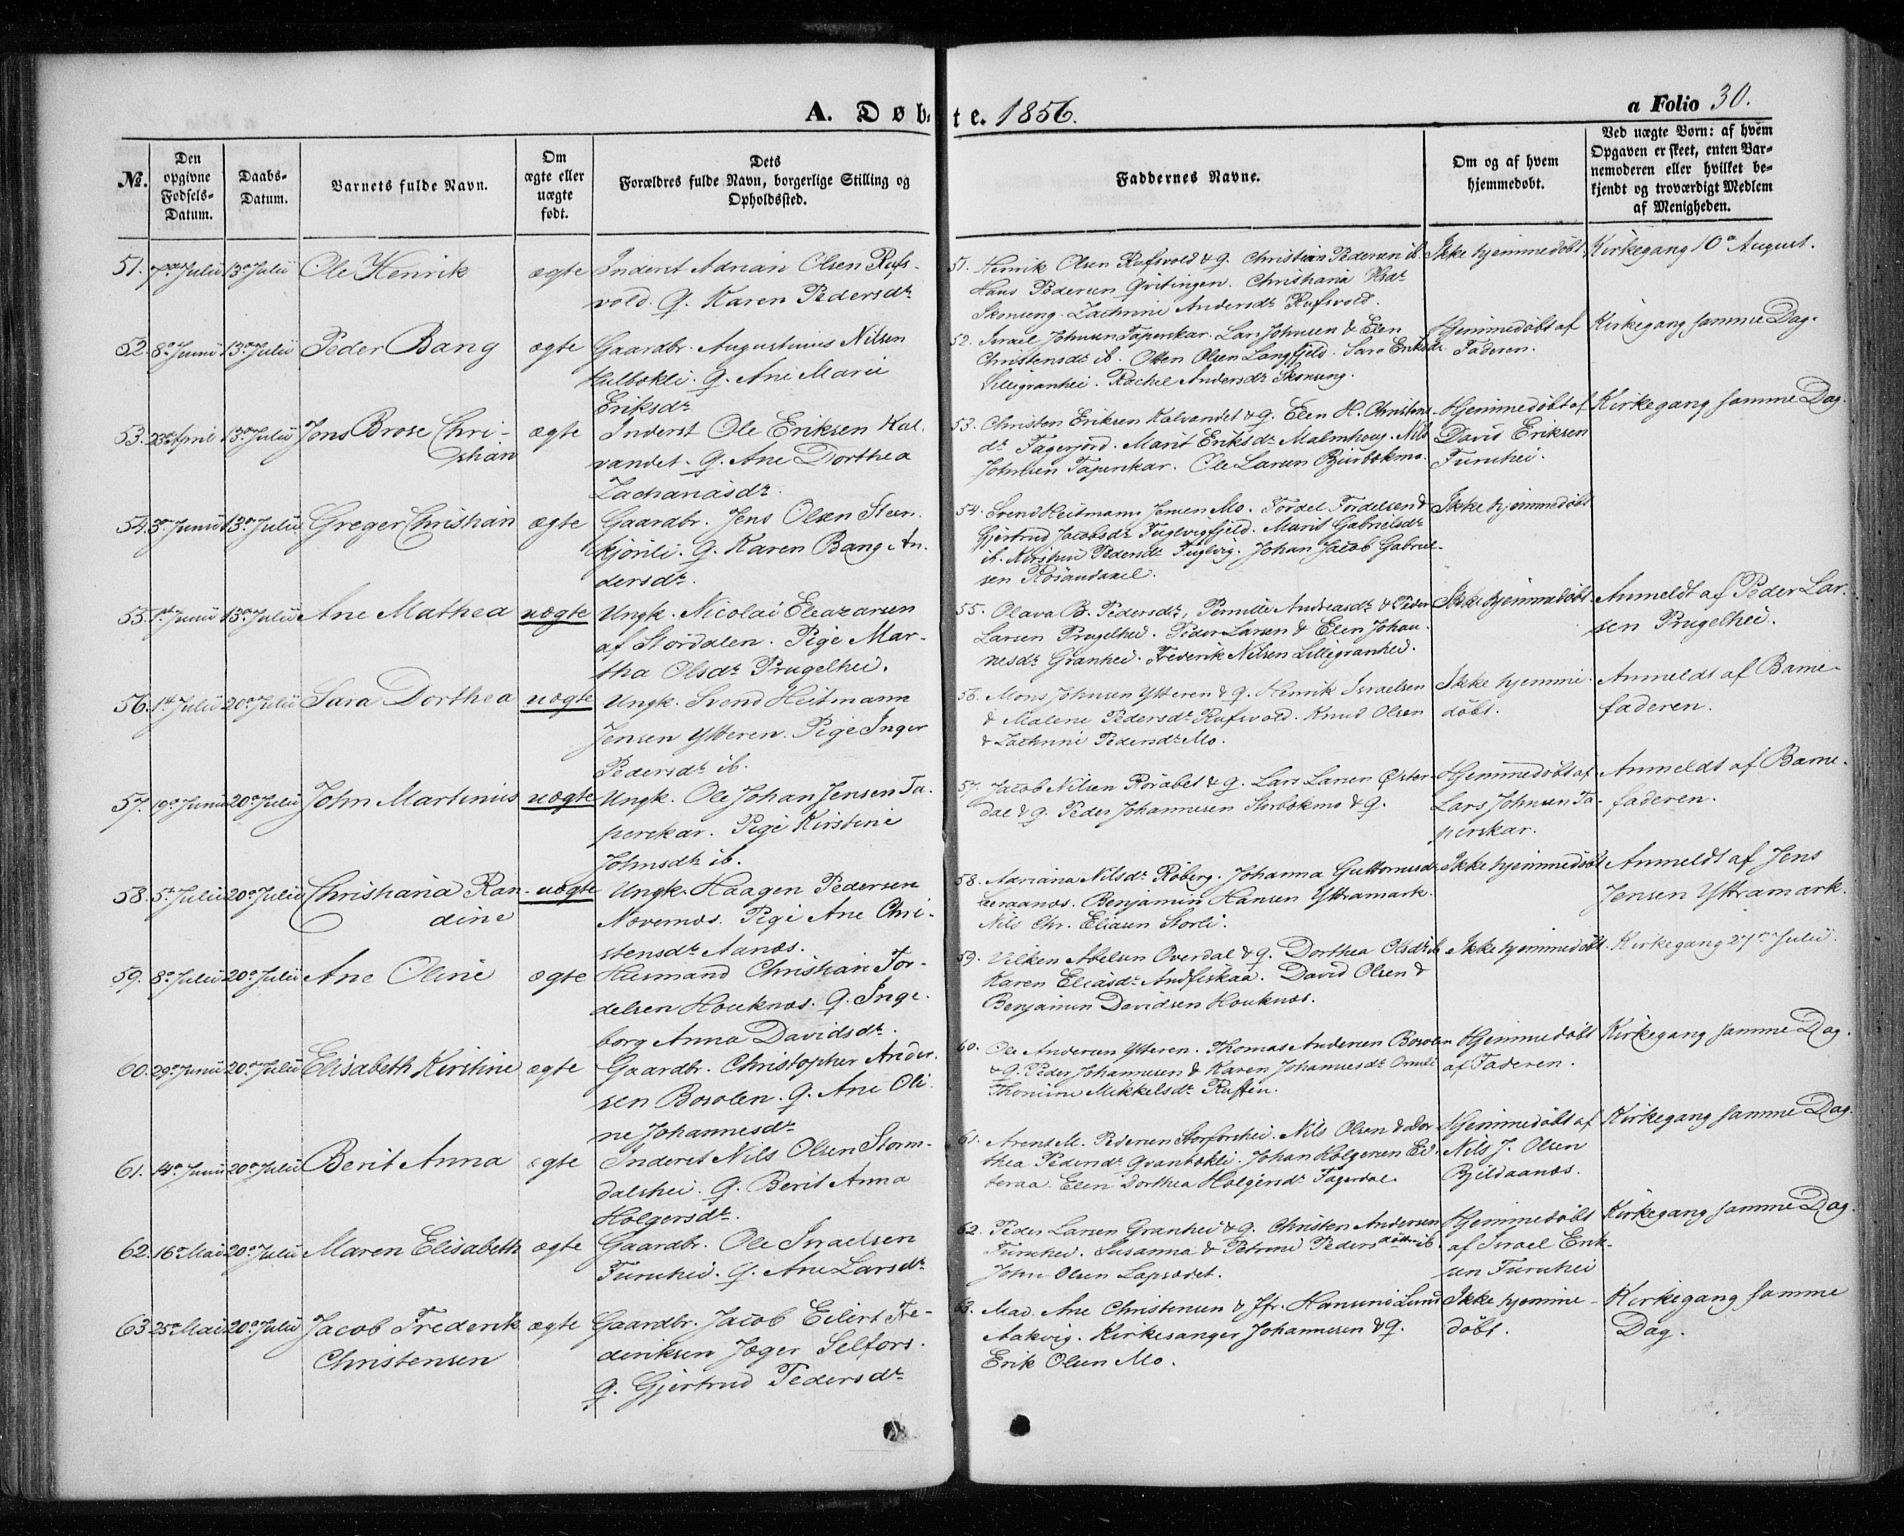 A. Døbte. 1856.
a Folio 30.
No.
Den opgivne Fødsels-Datum.
Daabs-Datum.
Barnets fulde Navn.
Om ægte eller uægte født.
Dets Forældres fulde Navn, borgerlige Stilling og Opholdssted.
Faddernes Navne.
Om og af hvem hjemmedøbt.
Ved uægte Børn: af hvem Opgaven er skeet, enten Barnemoderen eller hvilket bekjendt og troværdigt Medlem af Menigheden.
51. 7de Julii 13de Julii Ole Henrik ægte Inderst Adrian Olsen Rufs-
vold. G. Karen Pedersdr
51. Henrik Olsen Rufsvold & G. Christian Pedersen ib.
Hans Pedersen Qvitingen. Christiana
Skonseng. Zachrine Andersdr Rufsvold.
Ikke hjemmedøbt
Kirkegang 10de August.
52. 8de Junii 13de Julii Peder Bang ægte Gaardbr. Augustinus Nilsen
Hulbækli. G. Ane Marie
Eriksdr
52. Israel Johnsen Taperskar. Lars Johnsen & Elen
Christensdr ib. Olsen Langfjeld. Sara Eriksdr
Lillegranhei. Rachel Andersdr Skonseng.
Hjemmedøbt af
Faderen.
Kirkegang samme Dag.
53. April 13de Julii Jens Brose Chri-
stian ægte Inderst Ole Eriksen Kal-
vandet. G. Ane Dorthea
Zachariasdr.
53. Christen Eriksen Kalvandet & G. Elen H. Christens-
dr Fagerjord. Marit Eriksdr Malmhoug. Nils
Johnsen Taperskar. Ole Larsen Bjurbekmo.
Hjemmedøbt af
David Eriksen
Furuhei.
Kirkegang samme Dag.
54. 3de Junii 13de Julii Greger Christian ægte Gaardbr. Jens Olsen Steen-
kjonli. G. Karen Bang An-
dersdr.
54. Svend Heitmann Jensen Mo. Tordel Tordelsen &
Gjertrud Jacobsdr Fuglvigfjeld. Marit Gabrielsdr
ib. Kirstine Pedersdr Fuglvig. Johan Jacob Gabriel-
sen Rosaudaael.
Ikke hjemmedøbt
55. 1st Junii 13de Julii Ane Mathea uægte Ungk. Nicolai Eleazarsen
af Stordalen. Pige Mar-
tha Olsdr Prugelhei.
55. Olava B. Pedersdr, Pernille Andreasdr & Peder
Larsen Prugelhei. Peder Larsen & Elen Johan-
nesdr Granhei. Frederik Nilsen Lillegranhei.
Ikke hjemmedøbt.
Anmeldt af Peder Lar-
sen Prugelhei.
56. 1st Julii 20de Julii Sara Dorthea uægte Ungk. Svend Heitmann
Jensen Ytteren. Pige Inger
Pedersdr ib.
56. Mons Johnsen Ytteren & G. Henrik Israelsen
& Malene Pedersdr Rufsvold. Knud Olsen
& Zachrine Pedersdr Mo.
Ikke hjemme-
døbt.
Anmeldt af Barne-
faderen.
57. 19de Junii 20de Julii John Martinus uægte Ungk. Ole Johan Jensen Ta-
perskar. Pige Kirstine
Johnsdr ib.
57. Jacob Nilsen Rørabet & G. Lars Larsen Øster-
dal & G. Peder Johannesen Storbækmo & G.
Hjemmedøbt af
Lars Johnsen Ta-
perskar.
Anmeldt af Barne-
faderen.
58. 5te Julii 20de Julii Christiana Ran-
dine uægte Ungk. Haagen Pedersen
Nævernes. Pige Ane Chri-
stensdr Aanæs.
58. Adriana Nilsdr Røberg. Johanna Guttormsdr
Benjamin Hansen Yttramark.
Nils Chr. Eliasen Storli.
Ikke hjemmedøbt
Anmeldt af Jens
Jensen Yttramark.
59. 8de Julii 20de Julii Ane Oline ægte Husmand Christian Tor-
delsen Houknæs. G. Inge-
borg Anna Davidsdr.
59. Vilken Abelsen Overdal & G. Dorthea Olsdr ib
Karen Eliasdr Andfiskaa. David Olsen &
Benjamin Davidsen Houknæs.
Ikke hjemmedøbt.
Kirkegang 27de Julii.
60. 29de Junii 20de Julii Elisabeth Kirstine ægte Gaardbr. Christopher Ander-
sen Bosolen. G. Ane Oli-
ne Johannesdr
60. Ole Andersen Ytteren. Thomas Andersen Bosolen
& G. Peder Johannesen & Karen Johannesdr Ormli
Thomine Mikkelsdr Raften.
Hjemmedøbt
af Faderen.
Kirkegang samme Dag.
61. 14de Junii 20de Julii Berit Anna ægte Inderst Nils Olsen Storm-
dalshei. G. Berit Anna
Holgersdr.
61. Arent M. Pedersen Storforshei. Nils Olsen & Dor-
thea Pedersdr Granbækli. Johan Holgersen Ei-
teraa. Elen Dorthea Holgersdr Fagerdal.
Hjemmedøbt af
Nils J. Olsen
Bjeldaanæs.
Kirkegang samme Dag.
62. 16de Mai 20de Julii Maren Elisabeth ægte Gaardbr. Ole Israelsen
Furuhei. G. Ane Larsdr
62. Peder Larsen Granhei & G. Christen Andersen
Furuhei. Susanna & Petrine Pedersdøttre ib.
John Olsen Lapsædet.
Hjemmedøbt
af Israel Erik-
sen Furuhei
Kirkegang samme Dag.
63. 25de Mai 20de Julii Jacob Frederik
Christensen ægte Gaardbr. Jacob Eilert Fre-
deriksen Jæger Selfors.
G. Gjertrud Pedersdr
63. Mad. Ane Christensen & Jfr. Hansine Lund
Aakvig. Kirkesanger Johannesen & G.
Erik Olsen Mo.
Ikke hjemme-
døbt.
Kirkegang samme
Dag.